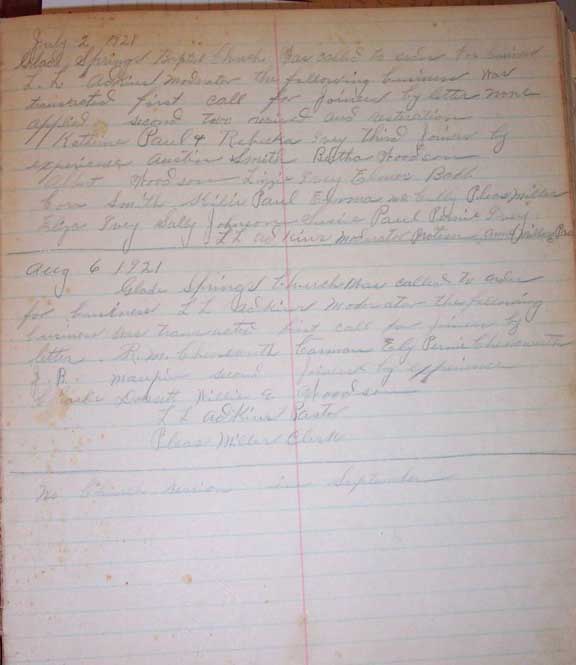 July 2 1921
Glade Springs Baptist Church was called to order for business
L. L Adkins Moderator the following business was
transacted first call for joiners by letter none
applied second two recived and restoration
Katherine Paul & Rebecka Ivey third joiners by
experience Austin Smith Bertha Woodson
Albert Woodson Lizzie Ivey Elmer
Cora Smith Paul Emma Pleas Miller
Ivey Sally Johnson Susie Paul Pernie Ivey
L L Adkins Moderator
Aug 6 1921
Glade Springs Church was called to order
for business L L Adkins Moderator the following
business was transacted first call for joiners by
letter R. M. Chenowith Carman Ely Pernie Chenowith
Maupin second joiners by experience
Dorsett Willie E Woodson
L L Adkins Pastor
Pleas Miller Clerk
No Church session in September